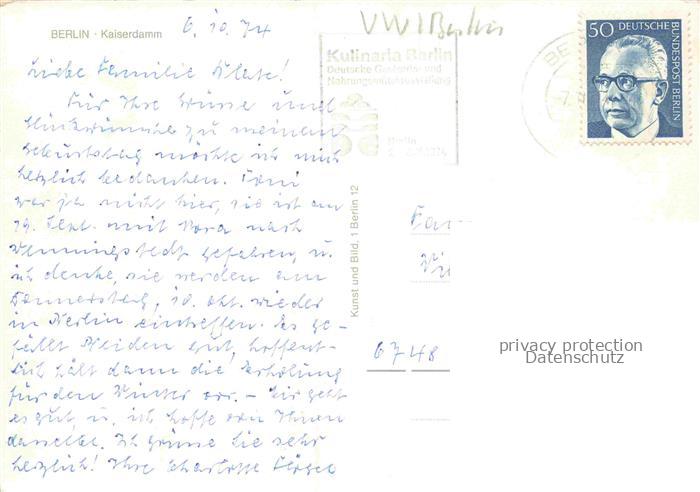 BERLIN · Kaiserdamm
6.10.74
VWI Berlin
Kulinaria Berlin
Deutsche Gastwirts- und
Nahrungsmittelausstellung
Berlin
1974
BE
50 DEUTSCHE BUNDESPOST BERLIN
Liebe Familie
Für Ihre Grüsse und
Glückwünsche zu meinem
Geburtstag möchte ich mich
herzlich bedanken. Toni
war ja nicht hier, sie ist am
19. Sept. mit Nora nach
Wenningstedt gefahren, u.
ich denke, sie werden am
Donnerstag, 10. Okt. wieder
in Berlin eintreffen. Es ge-
fällt Beiden gut, hoffent-
lich hält dann die Erholung
für den Winter vor. – Mir geht
es gut, u. ich hoffe von Ihnen
dasselbe. Ich grüsse Sie sehr
herzlich! Ihre Charlotte
Kunst und Bild, 1 Berlin 12
Fam
6748
privacy protection
Datenschutz